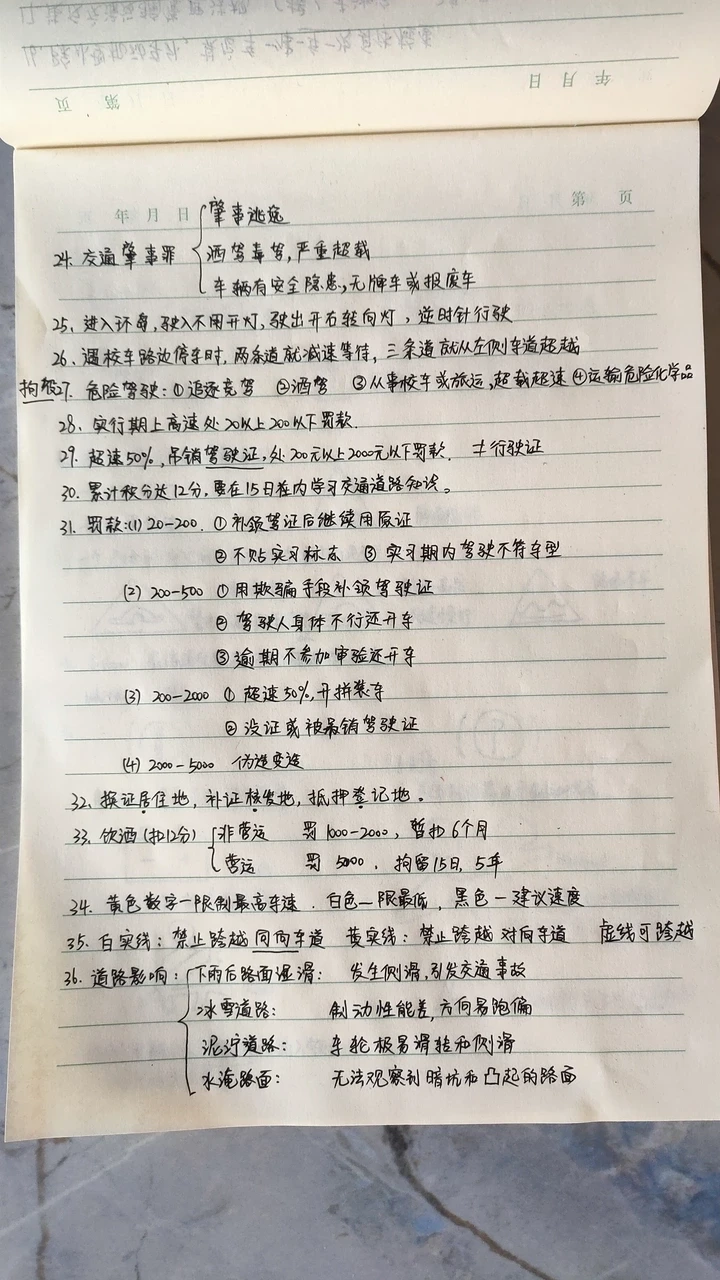 年 月 日
第 页
年 月 日
第 页
肇事逃逸
24. 交通肇事罪 酒驾毒驾,严重超载
车辆有安全隐患,无牌车或报废车
25、进入环岛,驶入不用开灯,驶出开右转向灯,逆时针行驶
26、遇校车路边停车时,两条道就减速等待,三条道就从左侧车道超越
拘役27. 危险驾驶:①追逐竞驾 ②酒驾 ③从事校车或旅运,超载超速 ④运输危险化学品
28. 实行期上高速处20以上200以下罚款.
29. 超速50%,吊销驾驶证,处200元以上2000元以下罚款. ≠行驶证
30. 累计积分达12分,要在15日在内学习交通道路知识。
31. 罚款:(1) 20-200. ①补领驾证后继续用原证
②不贴实习标志 ③实习期内驾驶不符车型
(2) 200-500 ①用欺骗手段补领驾驶证
②驾驶人身体不行还开车
③逾期不参加审验还开车
(3) 200-2000 ①超速50%,开拼装车
②没证或被吊销驾驶证
(4) 2000-5000 伪造变造
32、换证居住地,补证核发地,抵押登记地。
33. 饮酒(扣12分) 非营运 罚1000-2000,暂扣6个月
营运 罚5000,拘留15日,5年
34. 黄色数字一限制最高车速. 白色一限最低,黑色一建议速度
35. 白实线:禁止跨越同向车道 黄实线:禁止跨越对向车道 虚线可跨越
36. 道路影响:下雨后路面湿滑: 发生侧滑,引发交通事故
冰雪道路: 制动性能差,方向易跑偏
泥泞道路: 车轮极易滑转和侧滑
水淹路面: 无法观察到暗坑和凸起的路面